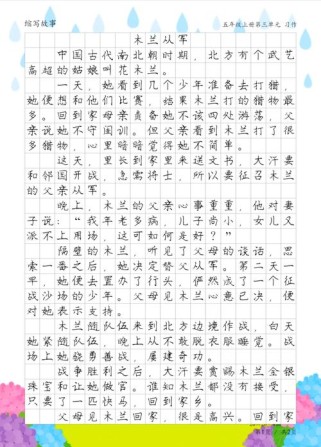 缩写故事
五年级上册第三单元 习作
木兰从军
中国古代南北朝时期，北方有个武艺
高超的姑娘叫花木兰。
一天，她看到几个少年准备去打猎，
她便想和他们比赛，结果木兰打的猎物最
多。回到家母亲责备她不该四处游荡，父
亲说她不守闺训。但父亲看到木兰打了很
多猎物，心里暗暗觉得她不简单。
这天，里长到家里来送文书，大汗要
和邻国开战，急需将士，所以要征召木兰
的父亲从军。
晚上，木兰的父亲心事重重，他对妻
子说：“我年老多病，儿子尚小，女儿又
派不上用场，这可如何是好？”
隔壁的木兰，听见了父母的谈话，思
索一番之后，她决定替父从军。第二天一
早，她便去置办了行头，俨然成了一个征
战沙场的少年。父母见木兰心意已决，便
对她表示支持。
木兰随队伍来到北方边境作战，白天
她紧随队伍，晚上从不敢脱衣服睡觉。战
场上她骁勇善战，屡建奇功。
战争胜利之后，大汗要赏赐木兰金银
珠宝和让她做官。谁知木兰都没有接受，
只要了一匹快马，回到家乡。
父母见木兰回家，很是高兴。回到家
第1页 / 共2页